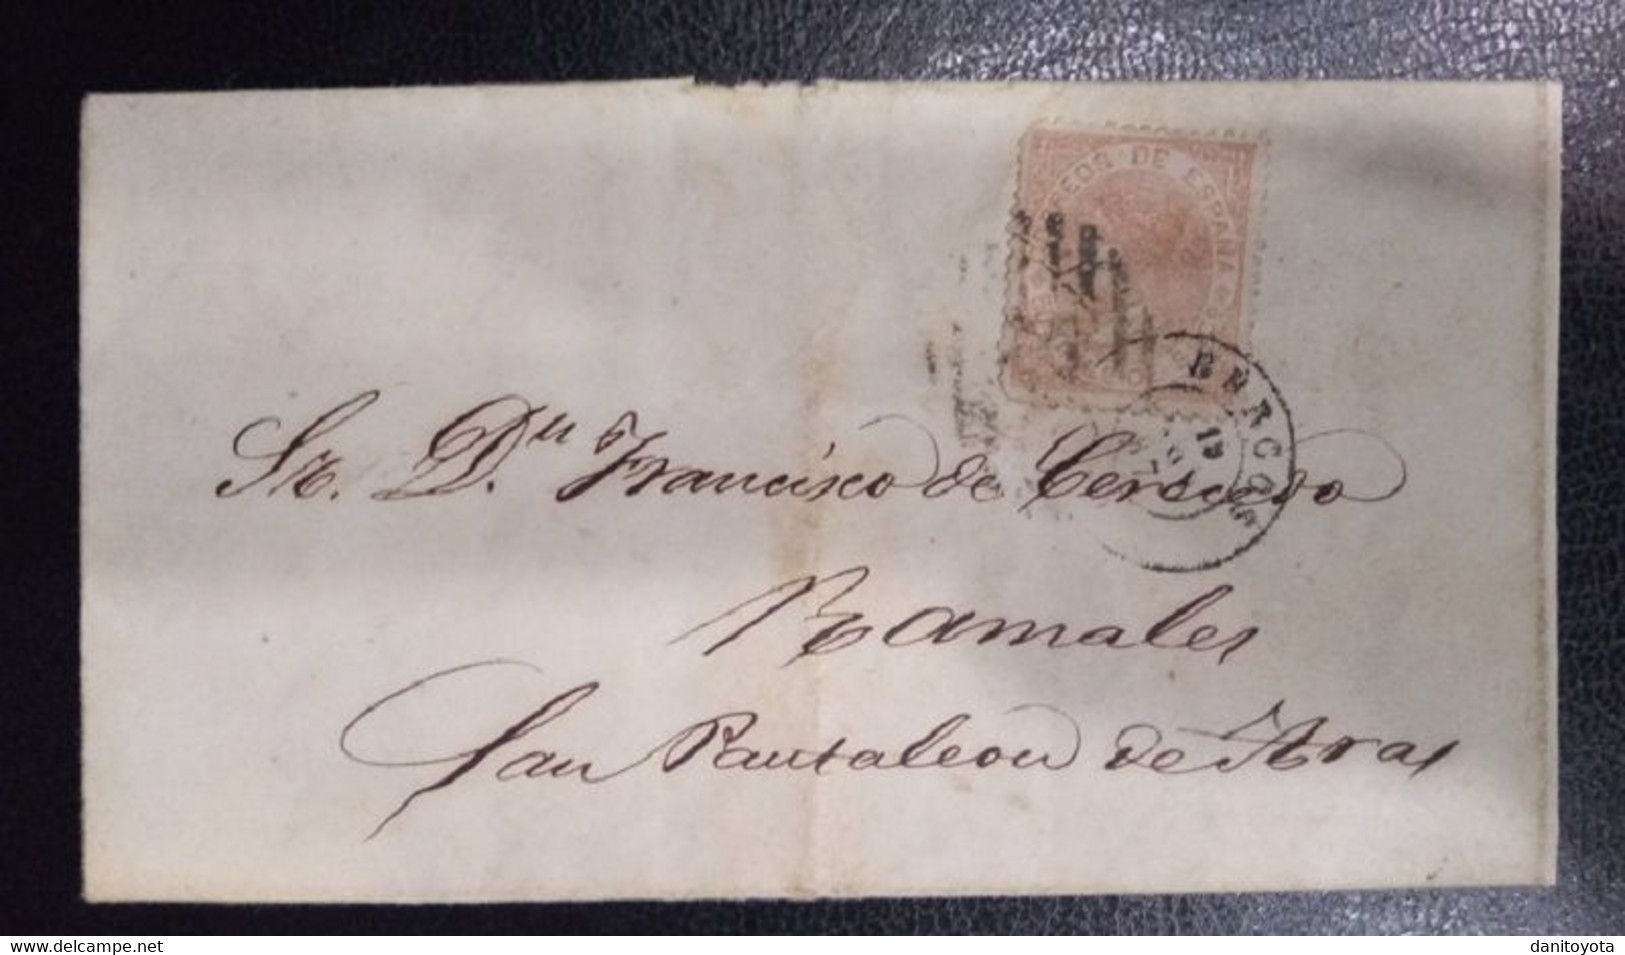 CORREOS DE ESPAÑA
BERCEDO
19
Sr. D.n Francisco de
Ramales
San Pantaleon de Aras
www.delcampe.net
danitoyota